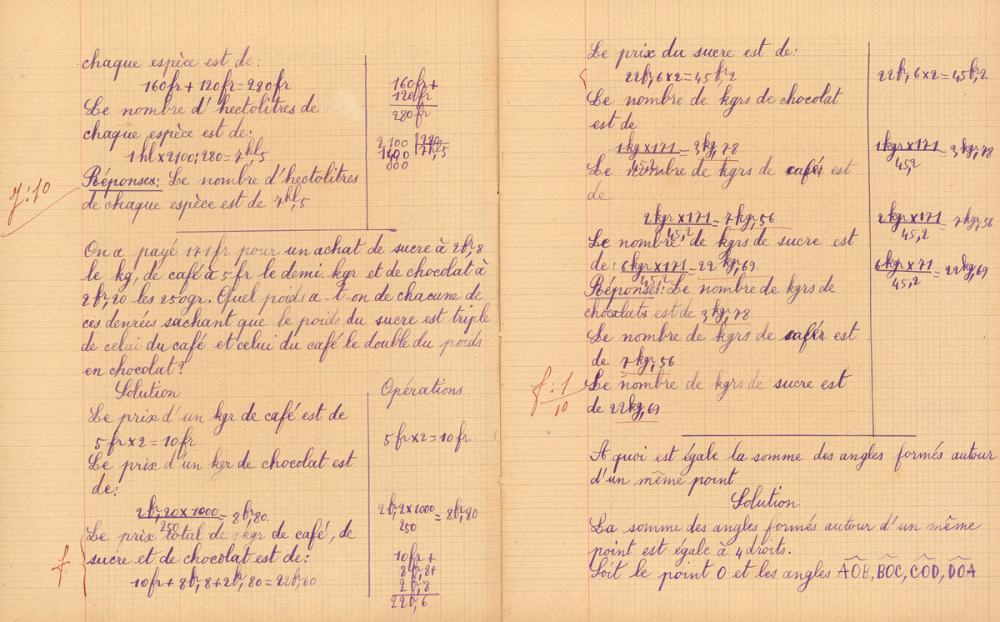 chaque espèce est de:
160fr + 120fr = 280fr
Le nombre d'hectolitres de
chaque espèce est de:
1hl x 2100 : 280 = 7hl,5
Réponses: Le nombre d'hectolitres
de chaque espèce est de 7hl,5
160fr +
120fr
280fr
2100 280
1400 7hl,5
000
On a payé 171fr pour un achat de sucre à 2fr,8
le kg, de café à 5fr le demi kgr et de chocolat à
2fr,20 les 250gr. Quel poids a-t-on de chacune de
ces denrées sachant que le poids du sucre est triple
de celui du café et celui du café le double du poids
en chocolat?
Solution Opérations
Le prix d'un kgr de café est de
5fr x 2 = 10fr
5fr x 2 = 10fr
Le prix d'un kgr de chocolat est
de:
2fr,20 x 1000 = 8fr,80
250
2fr,2 x 1000 = 8fr,80
250
Le prix total de 1kgr de café, de
sucre et de chocolat est de:
10fr + 8fr,8 + 2fr,80 = 22fr,60
10fr +
8fr,8+
2fr,8
22fr,6
Le prix du sucre est de:
22fr,6 x 2 = 45fr,2
22fr,6 x 2 = 45fr,2
Le nombre de kgrs de chocolat
est de
1kgr x 171 = 3kg,78
45,2
1kgr x 171 = 3kgr,78
45,2
Le nombre de kgrs de cafés est
de
2kgr x 171 = 7kgr,56
45,2
2kgr x 171 = 7kgr,56
45,2
Le nombre de kgrs de sucre est
de: 6kgr x 171 = 22kgr,69
45,2
6kgr x 71 = 22kgr,69
45,2
Réponses: Le nombre de kgrs de
chocolats est de 3kgr,78
Le nombre de kgrs de cafés est
de 7kgr,56
Le nombre de kgrs de sucre est
de 22kgr,69
A quoi est égale la somme des angles formés autour
d'un même point
Solution
La somme des angles formés autour d'un même
point est égale à 4 droits.
Soit le point O et les angles AOB, BOC, COD, DOA